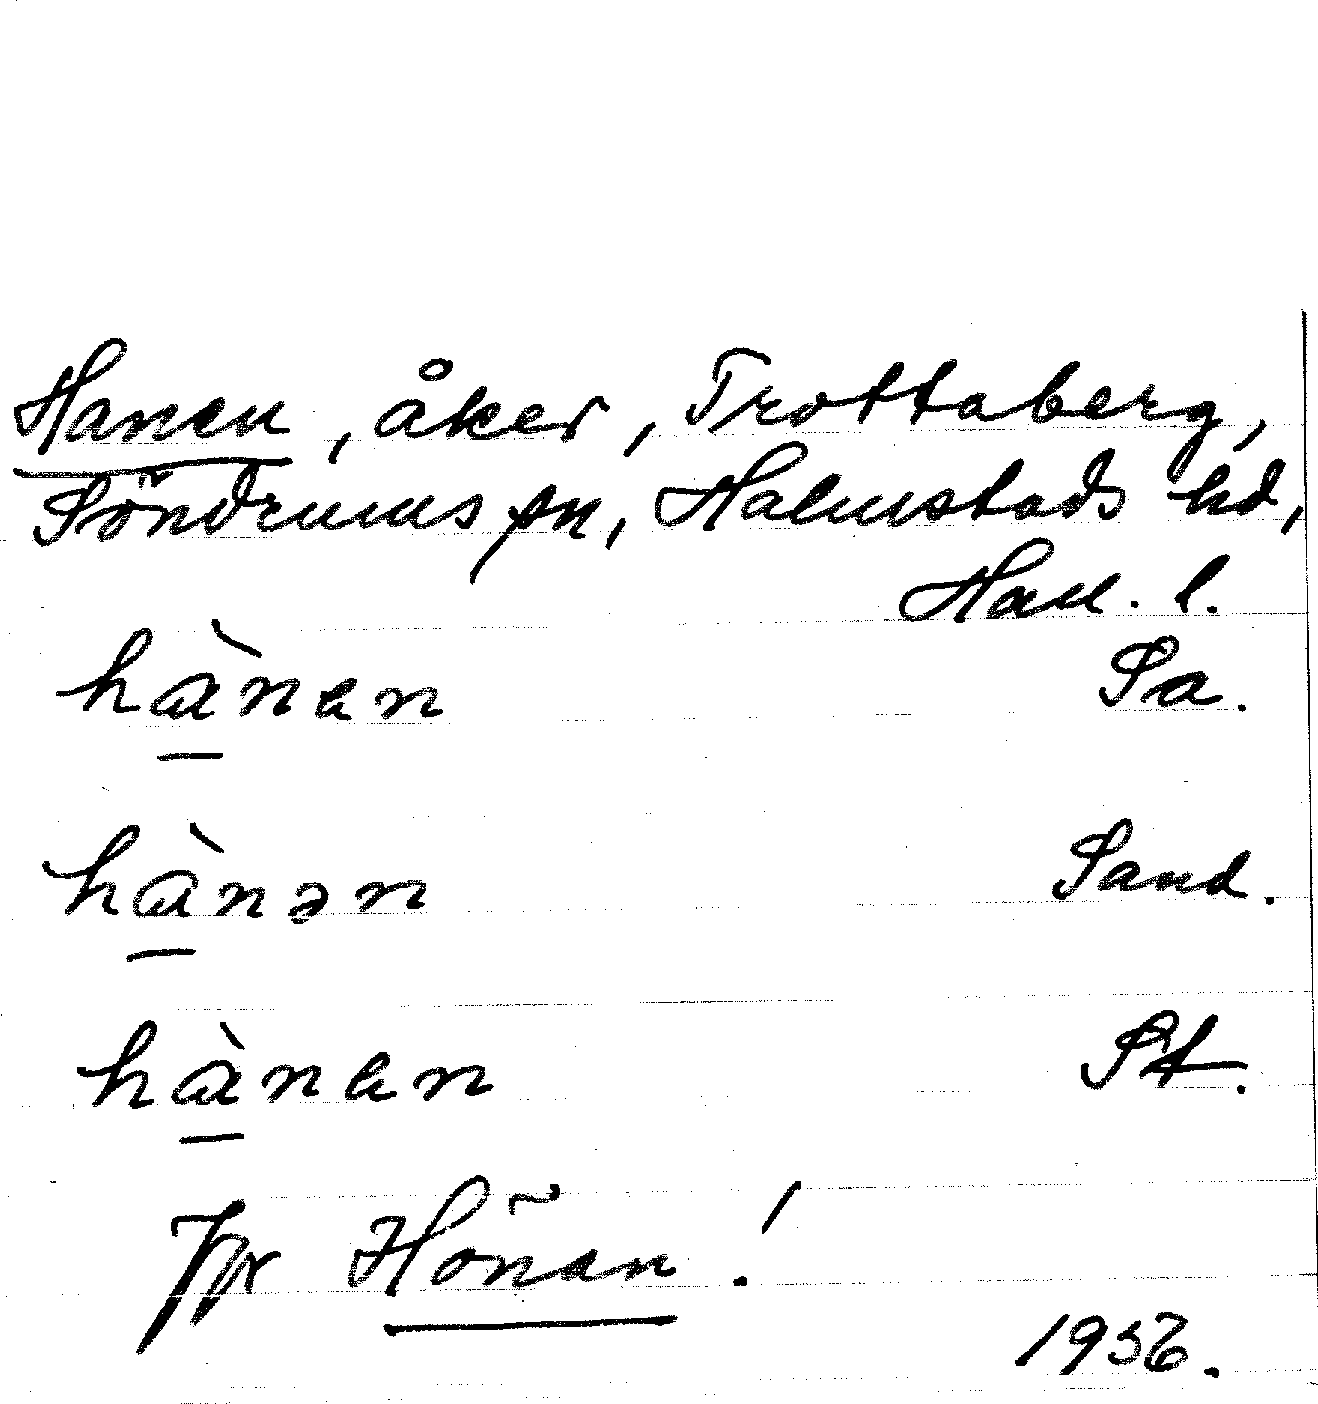 Hanen, åker, Trottaberg,
Söndrums sn, Halmstads hd,
Hall. l.
hànen Sa.
hànən Sand.
hànen St.
Jfr Hönan!
1936.